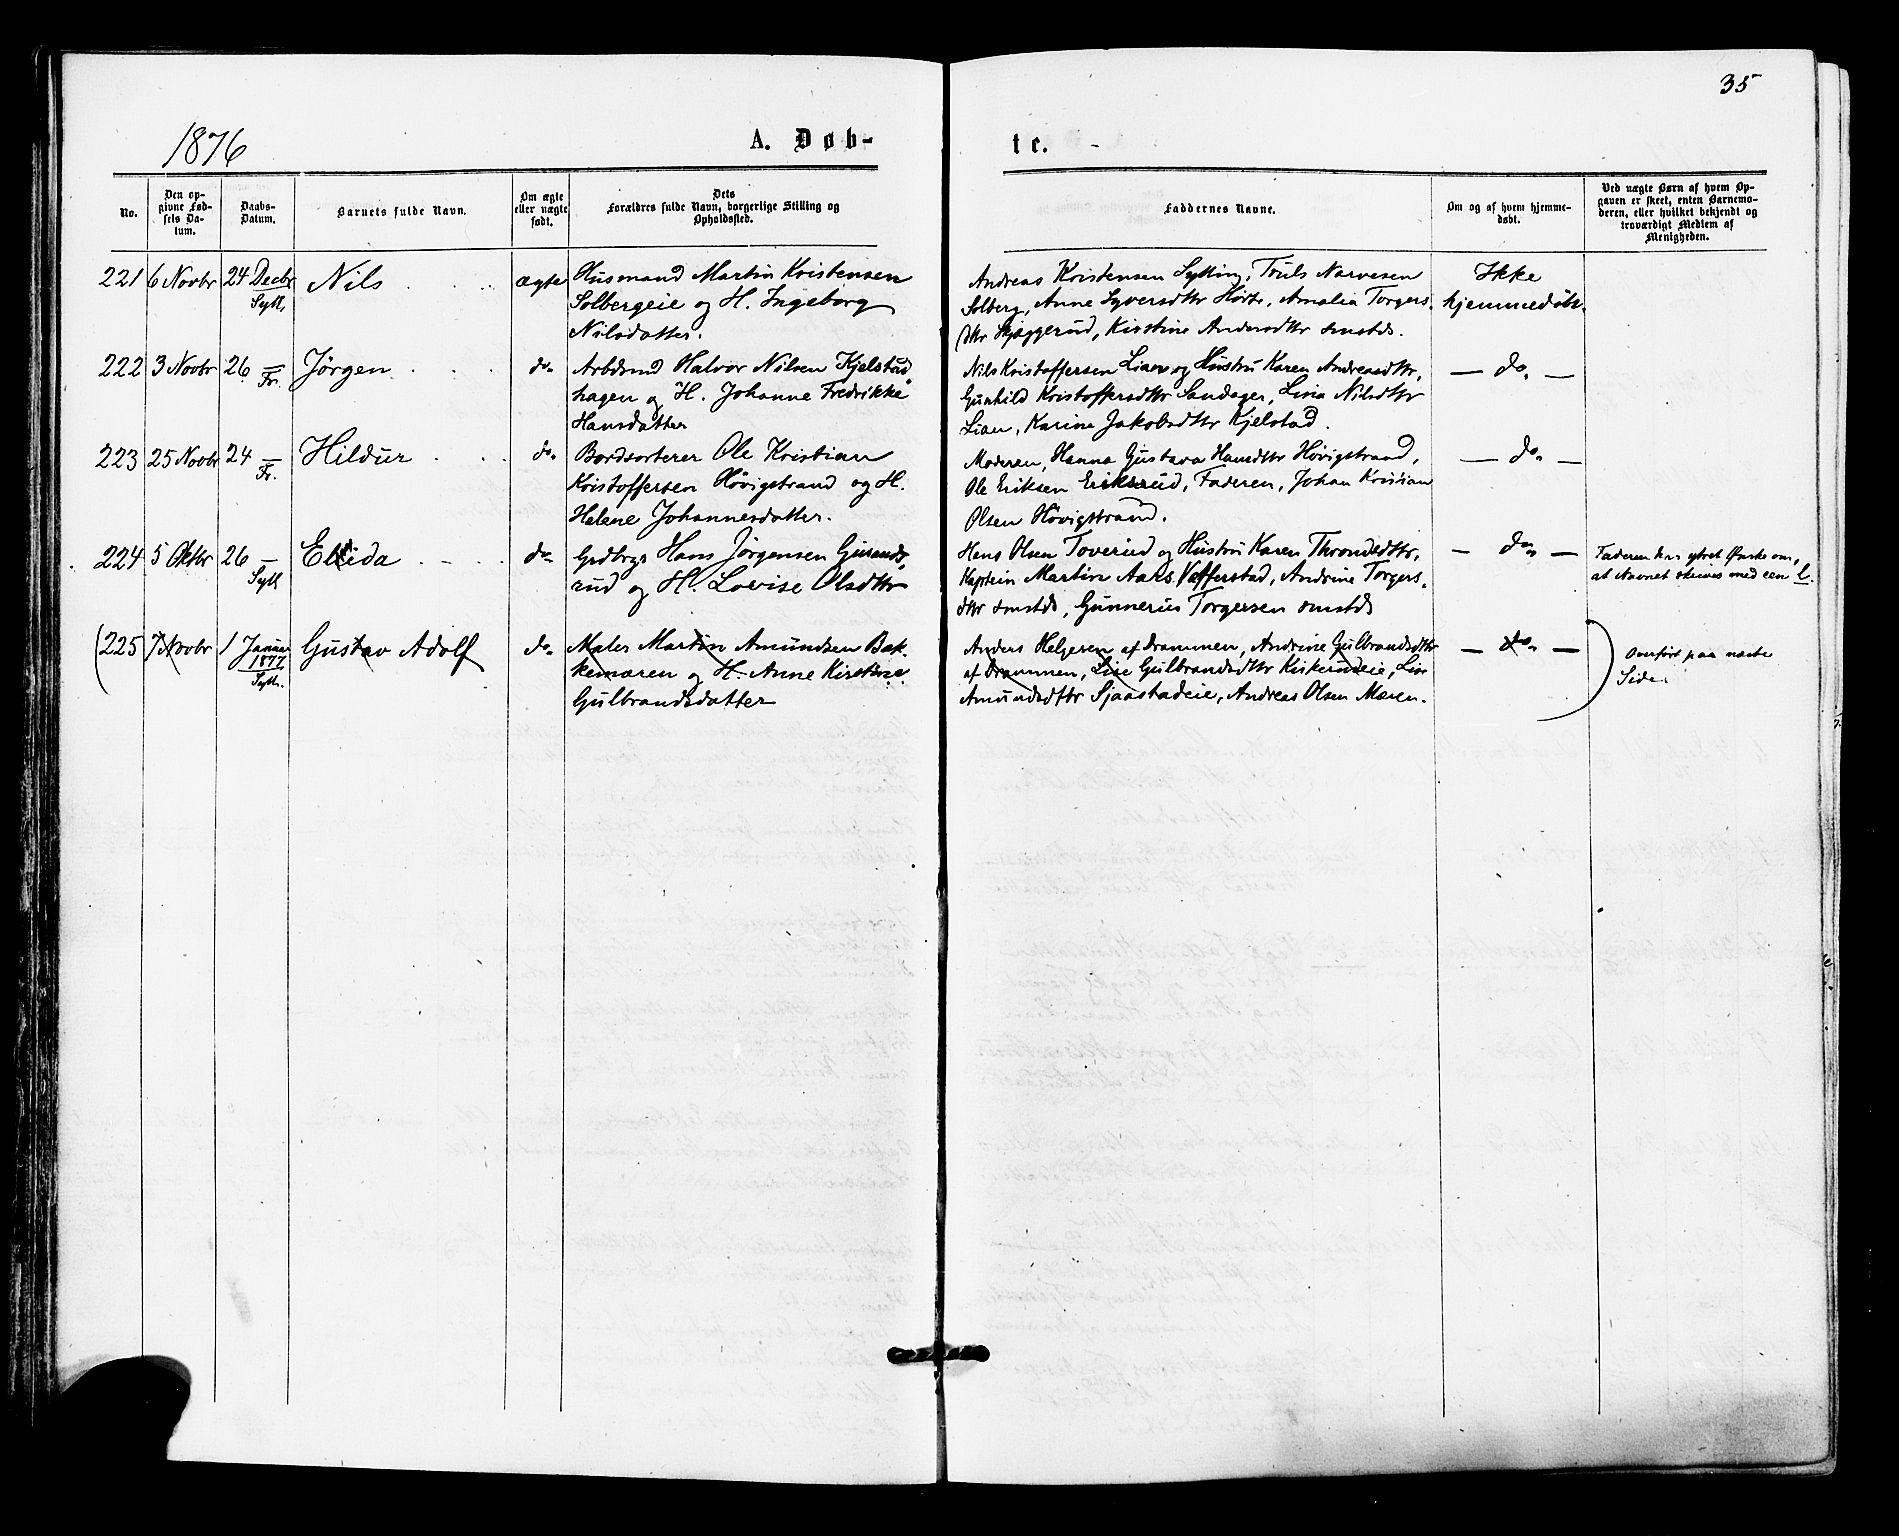 35
1876
A. Døb-
te.
No.
Den op-
givne Fød-
sels Da-
tum.
Daabs-
Datum.
Barnets fulde Navn.
Om ægte
eller uægte
født.
Dets
Forældres fulde Navn, borgerlige Stilling og
Opholdssted.
Faddernes Navne.
Om og af hvem hjemme-
døbt.
Ved uægte Børn af hvem Op-
gaven er skeet, enten Barnemo-
deren, eller hvilket bekjendt og
troværdigt Medlem af
Menigheden.
221 6 Novbr 24 Decbr Syll. Nils ægte
Husmand Martin Kristensen
Solbergeie og H. Ingeborg
Nilsdatter.
Andreas Kristensen Sylling, Truls Narvesen
Solberg, Anne Syversdttr Hørte, Amalia Torgers-
dttr Skjæggerud, Kirstine Andersdttr smstds.
Ikke
hjemmedøbt.
222 3 Novbr 26 – Fr. Jörgen do
Arbdsmd Halvor Nilsen Kjelstad
hagen og H. Johanne Fredrikke
Hansdatter
Nils Kristoffersen Liaen og Hustru Karen Andreasdttr,
Gunhild Kristoffersdttr Sandager, Lina Nilsdttr
Liaen, Karine Jakobsdttr Kjelstad.
— do —
223 25 Novbr 24 – Fr. Hildur do
Bordsorterer Ole Kristian
Kristoffersen Hövigstrand og H.
Helene Johannesdatter.
Moderen, Hanna Gustava Hansdttr Hövigstrand,
Ole Eriksen Eriksrud, Faderen, Johan Kristian
Olsen Hövigstrand.
— do —
224 5 Oktbr 26 – Syll Ellida do
Grdbrgr Hans Jörgensen Gusands-
rud og H. Lovise Olsdttr
Hans Olsen Toverud og Hustru Karen Throndsdttr,
Kaptein Martin Aass Vefferstad, Andrine Torgers-
dttr smstds, Gunnerius Torgersen smstds
— do —
Faderen har ytret Ønske om,
at Navnet skrives med een l.
(225 7 Novbr 1 Januar 1877. Syll. Gustav Adolf do
Maler Martin Amundsen Bak-
kemaren og H. Anne Kirstine
Gulbrandsdatter
Anders Helgesen af Drammen, Andrine Gulbrandsdttr
af Drammen, Lise Gulbrandsdttr Kiskerudeie, Lise
Amundsdttr Sjaastadeie, Andreas Olsen Maren.
— do —
Overfört paa næste
Side.